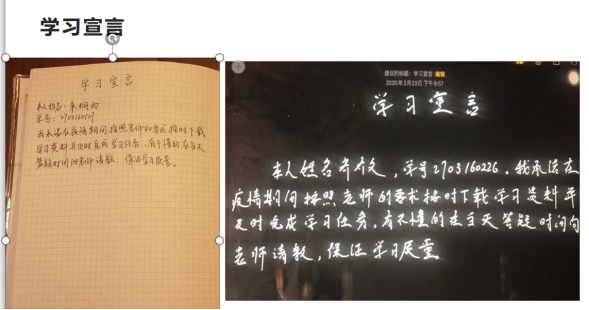 学习宣言
学习宣言
本人姓名：朱
学号：2703160107
我承诺在疫情期间按照老师的要求按时下载
学习资料并及时完成学习任务，有不懂的在当天
答疑时间向老师请教，保证学习质量。
建议的标题：学习宣言 编辑
2020年2月23日 下午8:57
学习宣言
本人姓名，学号2703160226，我承诺在
疫情期间按照老师的要求按时下载学习资料并
及时完成学习任务，有不懂的在当天答疑时间向
老师请教，保证学习质量